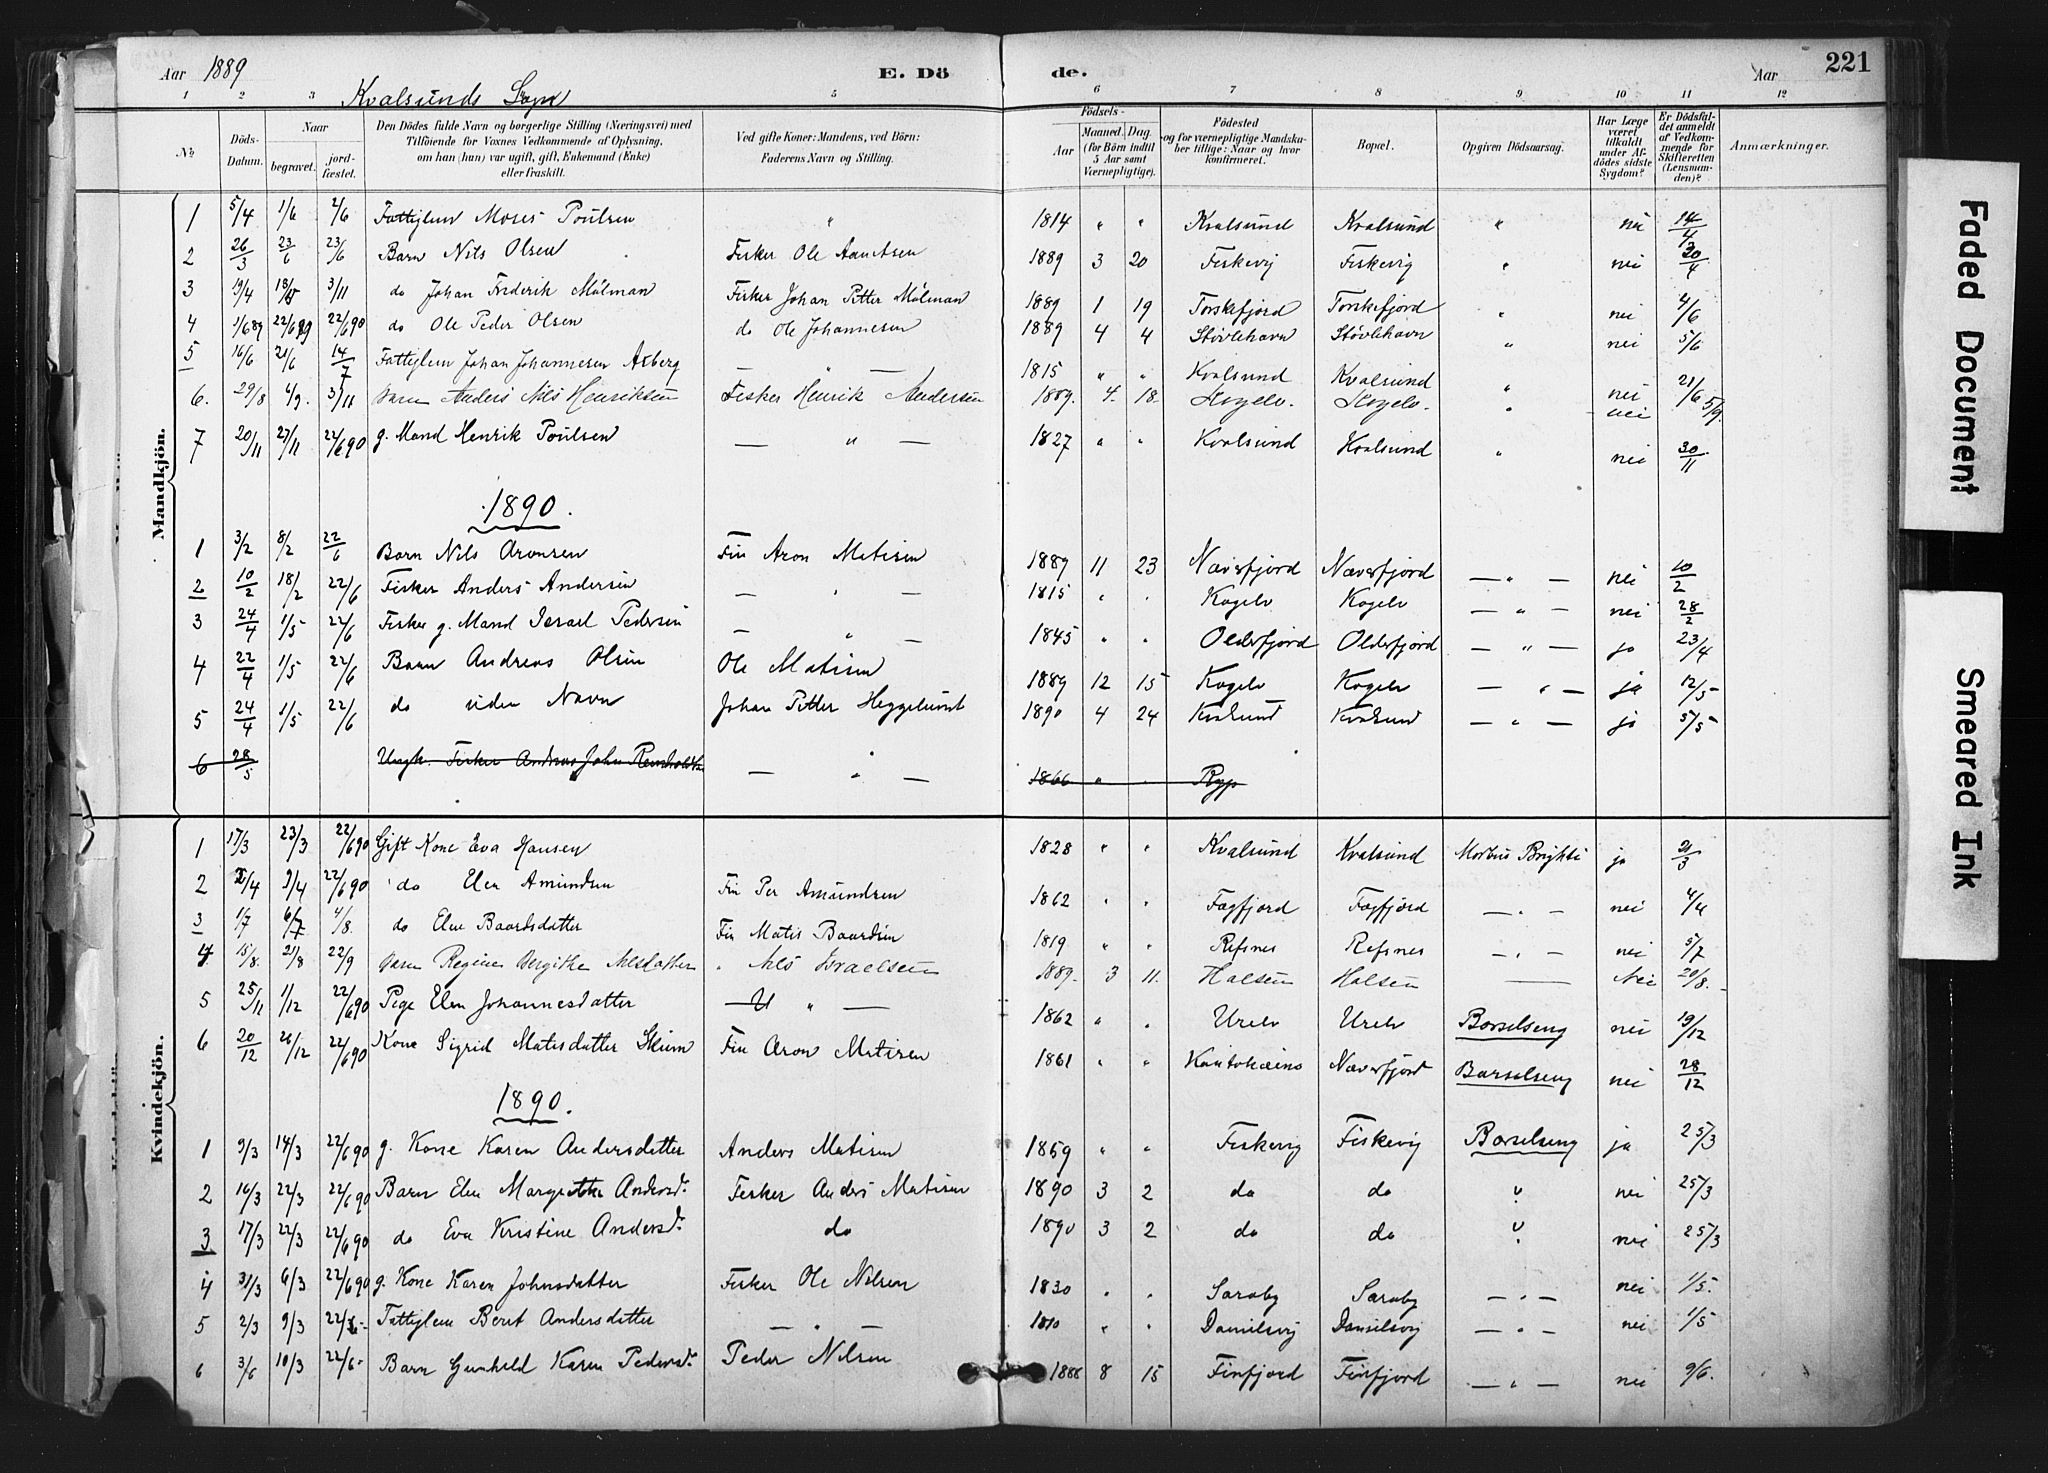 Aar 1889 E. Dö de. Aar 221
Kvalsunds Sogn
1 2 3 5 6 7 8 9 10 11 12
No Döds-Datum. Naar begravet. jord-fæstet. Den Dödes fulde Navn og borgerlige Stilling (Næringsvei) med Tilföiende for Voxnes Vedkommende af Oplysning, om han (hun) var ugift, gift, Enkemand (Enke) eller fraskilt. Ved gifte Koner: Mandens, ved Börn: Faderens Navn og Stilling. Födsels- Aar Maaned. Dag. (for Börn indtil 5 Aar samt Værnepligtige). Födested og for værnepligtige Mandskaber tillige: Naar og hvor konfirmeret. Bopæl. Opgiven Dödsaarsag. Har Læge været tilkaldt under Afdödes sidste Sygdom? Er Dödsfaldet anmeldt af Vedkommende for Skifteretten (Lensmanden)? Anmærkninger.
Mandkjön.
1 5/4 1/6 2/6 Fattiglem Moses Poulsen " 1814 " " Kvalsund Kvalsund " nei 14/4
2 26/3 23/6 23/6 Barn Nils Olsen Fisker Ole Amundsen 1889 3 20 Fiskevig Fiskevig " nei 30/4
3 19/4 18/5 3/11 do Johan Frederik Mölman Fisker Johan Petter Mölman 1889 1 19 Torskefjord Torskefjord " nei 4/6
4 1/6 89 22/6 89 22/6 90 do Ole Peder Olsen do Ole Johannesen 1889 4 4 Støvlehavn Støvlehavn " nei 5/6
5 16/6 21/6 14/7 Fattiglem Johan Johannesen Axberg — 1815 " " Kvalsund Kvalsund " nei 21/6
6. 29/8 4/9. 3/11 Barn Anders Nils Henriksen Fisker Henrik Andersen 1889. 4. 18. Kogelv. Kogelv. " nei 5/9.
7 20/11 27/11 22/6 90 g. Mand Henrik Poulsen — " — 1827 " " Kvalsund Kvalsund " nei 30/11
1890.
1 3/2 8/2 22/6 Barn Nils Aronsen Fin Aron Matisen 1889 11 23 Næverfjord Næverfjord — " — nei 10/2
2 10/2 18/2 22/6 Fisker Anders Andersen — " — 1815 " " Kogelv Kogelv — " — nei 28/2
3 24/4 1/5 22/6 Fisker g. Mand Israel Pedersen — " — 1845 " " Olderfjord Olderfjord — " — ja 23/4
4 22/4 1/5 22/6 Barn Andreas Olsen Ole Matisen 1889 12 15 Kogelv Kogelv — " — ja 12/5
5 24/4 1/5 22/6 do uden Navn Johan Petter Heggelund 1890 4 24 Kvalsund Kvalsund — " — ja 5/5
6 28/5 Ungk. Fisker Andreas John — " — 1866 " " Ryp
Kvindekjön.
1 17/3 23/3 22/6 90 Gift Kone Eva Hansen 1828 " " Kvalsund Kvalsund Morbus Brighti ja 21/3
2 2/4 9/4 22/6 90 do Elen Amundsen Fin Per Amundsen 1862 " " Fægfjord Fægfjord — " — nei 4/4
3 1/7 6/7 4/8. do Elen Baardsdatter Fin Matis Baardsen 1819 " " Refsnes Refsnes — " — nei 5/7
4. 15/8. 21/8 22/9 Barn Regine Bergithe Nilsdatter " Nils Israelsen 1889. 3 11. Halsen Halsen — Nei 20/8.
5 25/11 1/12 22/6 90 Pige Elen Johannesdatter — " — 1862 " " Urelv Urelv Barselseng nei 19/12
6 20/12 26/12 22/6 90 Kone Sigrid Matisdatter Skum Fin Aron Matisen 1861 " " Koutokeino Næverfjord Barselseng nei 28/12
1890.
1 9/3 14/3 22/6 90 g. Kone Karen Andersdatter Anders Matisen 1859 " " Fiskevig Fiskevig Barselseng ja 25/3
2 16/3 22/3 22/6 90 Barn Elen Margrethe Andersd. Fisker Anders Matisen 1890 3 2 do do " nei 25/3
3 17/3 22/3 22/6 90 do Eva Kristine Andersd. do 1890 3 2 do do " nei 25/3
4 31/3 6/3 22/6 90 g. Kone Karen Johnsdatter Fisker Ole Nilsen 1830 " " Saraby Saraby — " — nei 1/5.
5 2/3 9/3 22/6- Fattiglem Beret Andersdatter — " — 1810 " " Danielsvig Danielsvig — " — nei 1/5
6 3/6 10/3 22/6- Barn Gunhild Karen Pedersd. Peder Nilsen 1886 8 15 Finfjord Finfjord — " — nei 9/6.
Faded Document
Smeared Ink